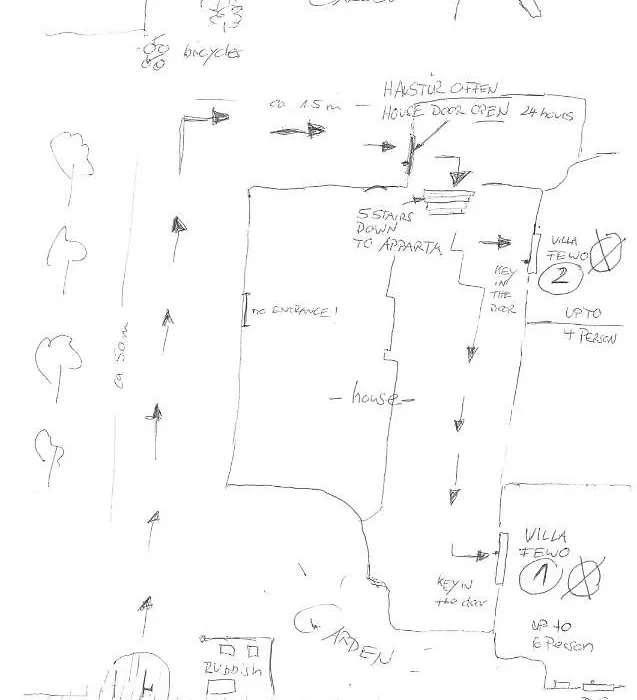 bicycles
ca 15 m
HAUSTÜR OFFEN
HOUSE DOOR OPEN 24 hours
5 STAIRS
DOWN
TO APPARTM.
VILLA
FEWO
2
KEY
IN
THE
DOOR
UP TO
4 PERSON
no ENTRANCE!
ca 50 m
- house -
VILLA
FEWO
1
KEY IN
the door
up to
6 Person
GARDEN
RUBBISH